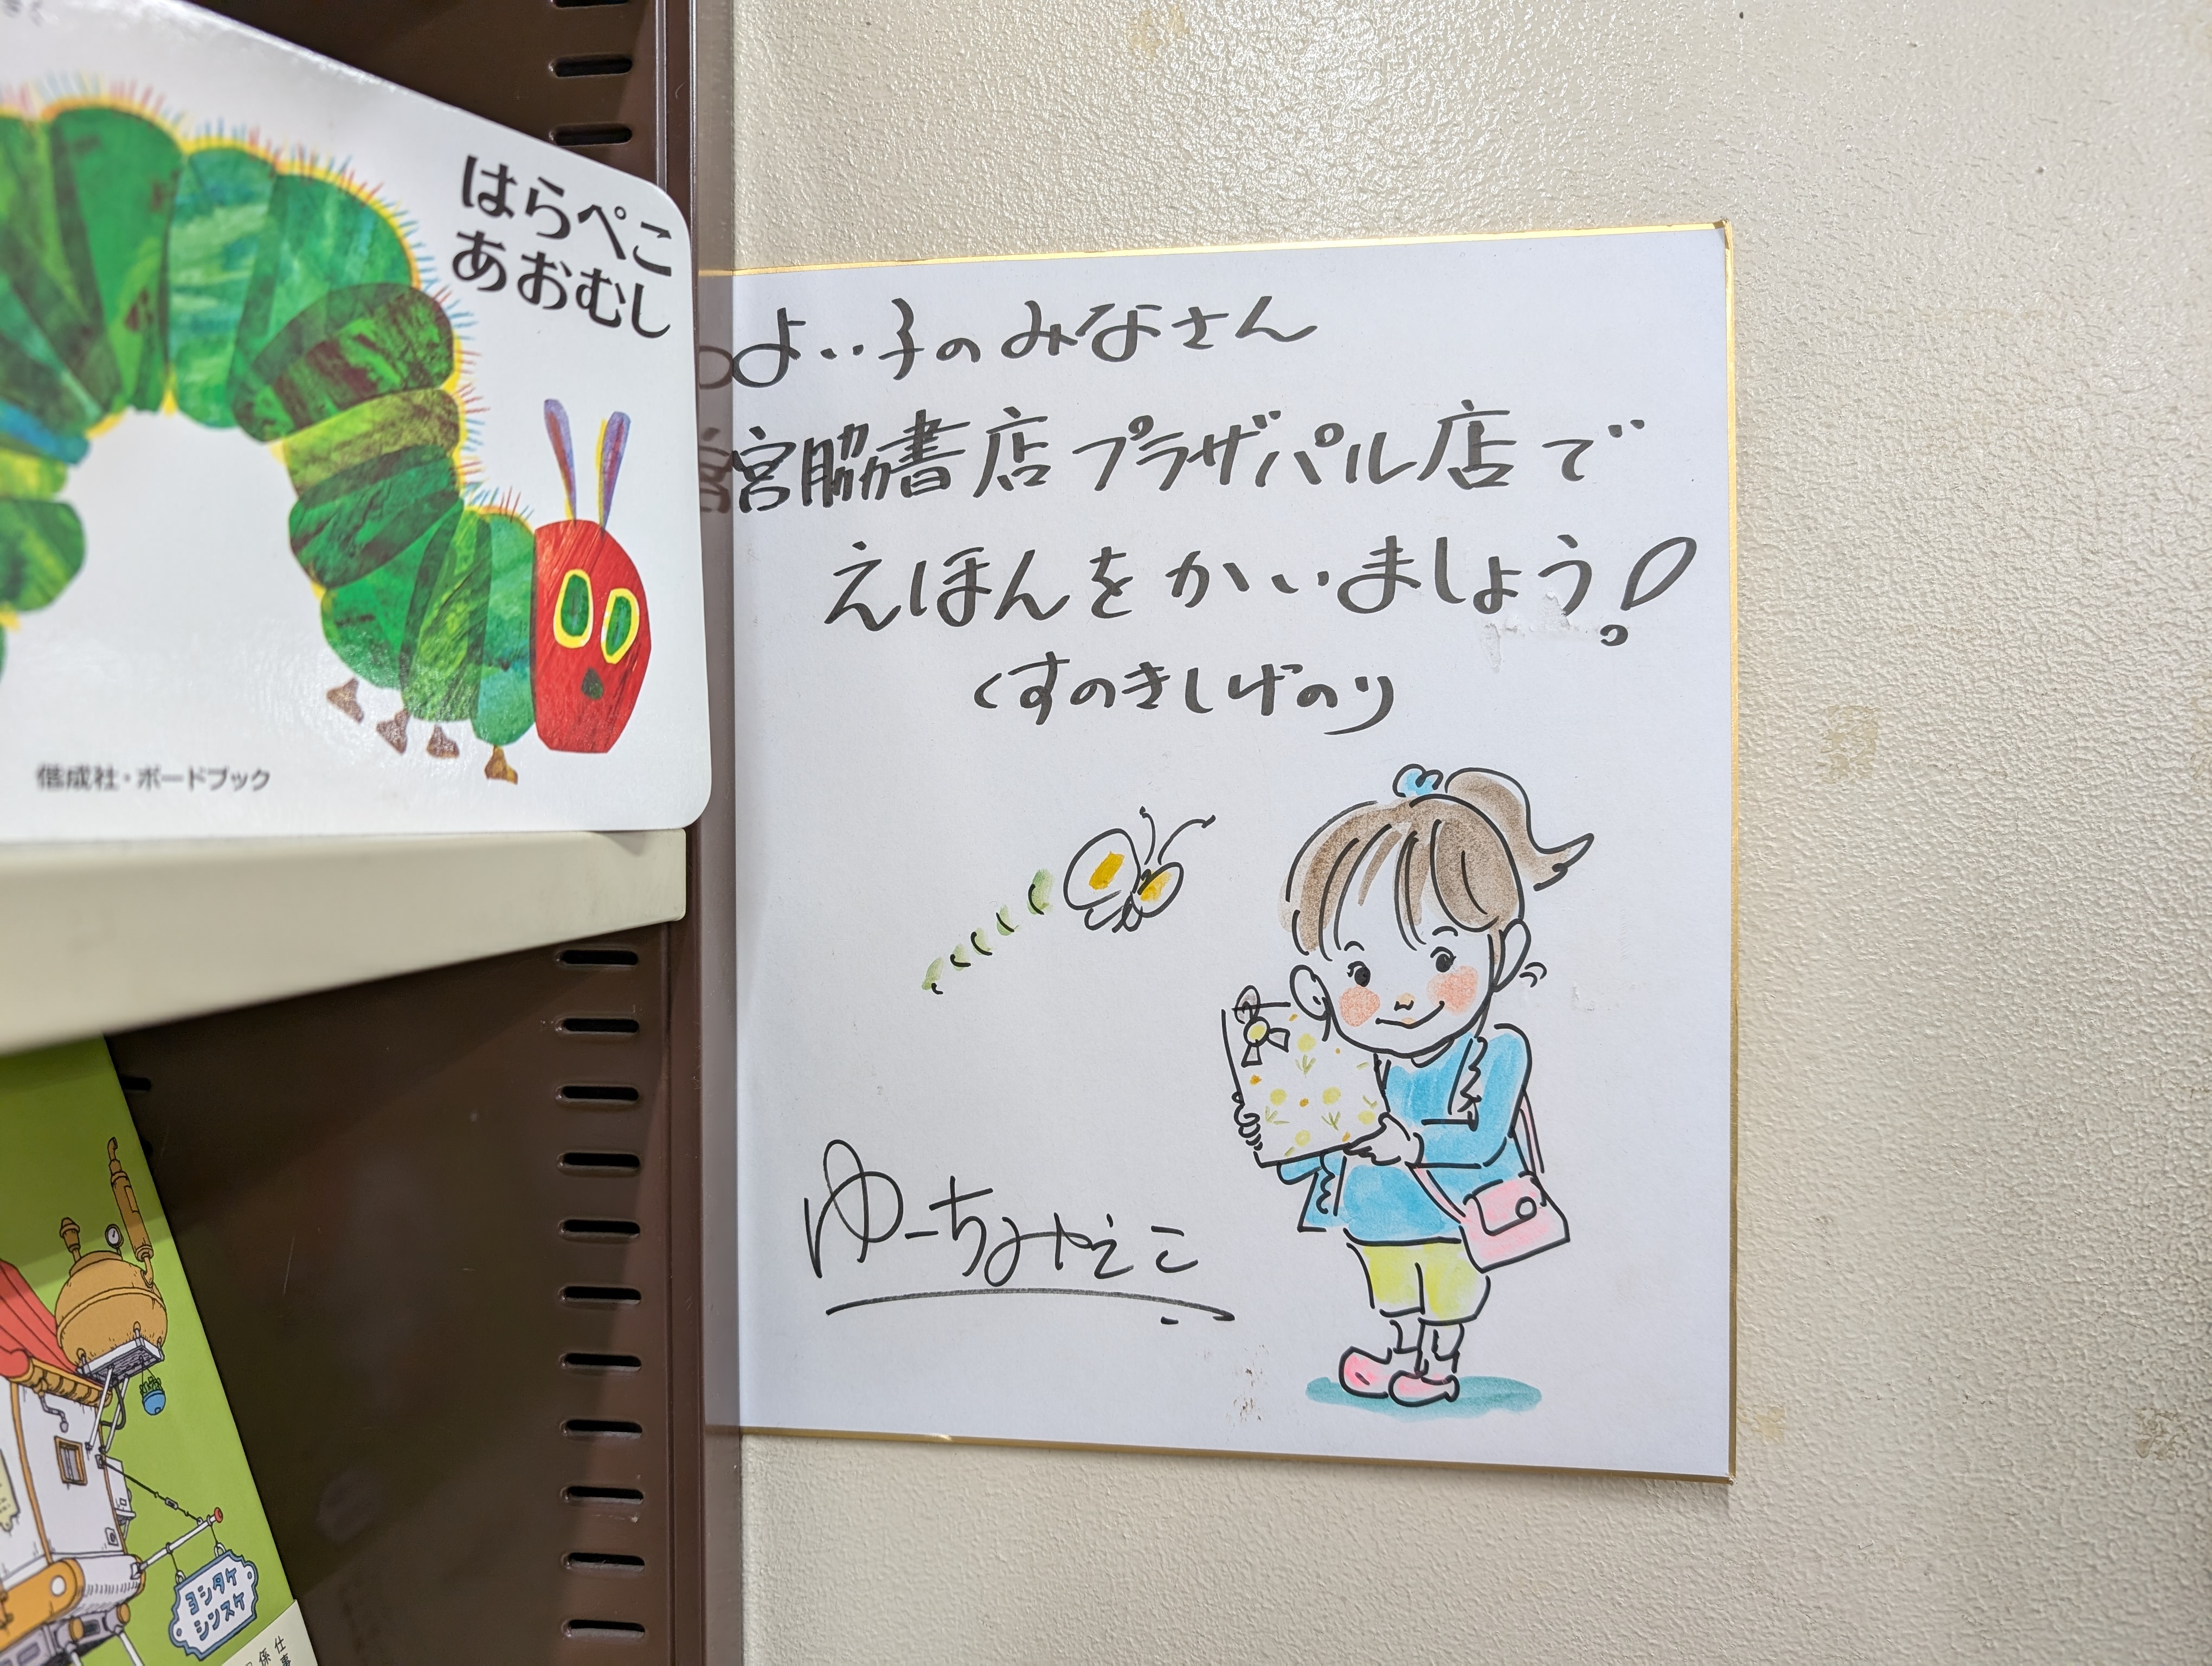 はらぺこ
あおむし
偕成社・ボードブック
よい子のみなさん
宮脇書店プラザパル店で
えほんをかいましょう!
くすのきしげのり
ゆーちみえこ
ヨシタケ
シンスケ